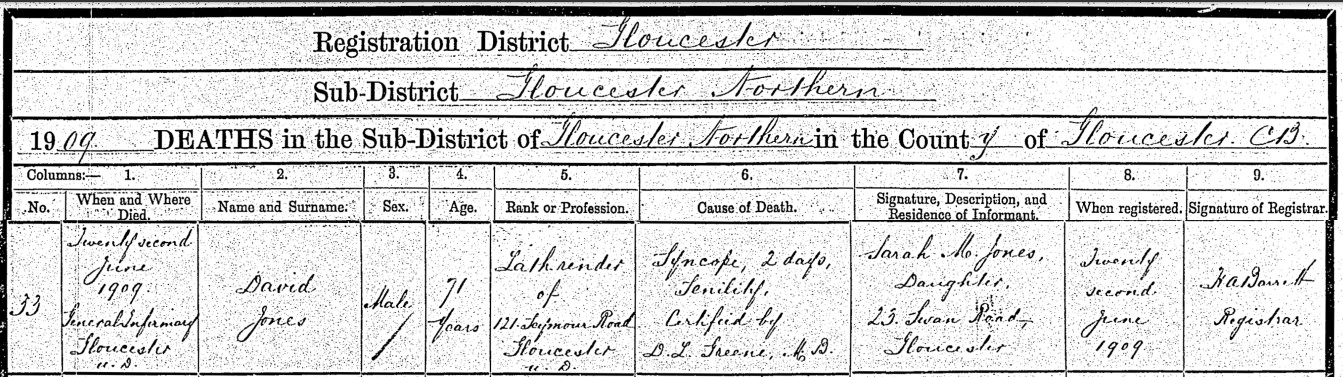 Registration District Gloucester
Sub-District Gloucester Northern
1909. DEATHS in the Sub-District of Gloucester Northern in the County of Gloucester. C.B.
Columns:— 1. 2. 3. 4. 5. 6. 7. 8. 9.
No. When and Where Died. Name and Surname. Sex. Age. Rank or Profession. Cause of Death. Signature, Description, and Residence of Informant. When registered. Signature of Registrar.
33
Twenty second
June
1909.
General Infirmary
Gloucester
u. D.
David
Jones
Male
71
years
Lath render
of
121. Seymour Road
Gloucester
u. D.
Syncope, 2 days,
Senility,
Certified by
D. L. Greene, M.B.
Sarah M. Jones,
Daughter,
23. Swan Road,
Gloucester
Twenty
second
June
1909
Barrett
Registrar